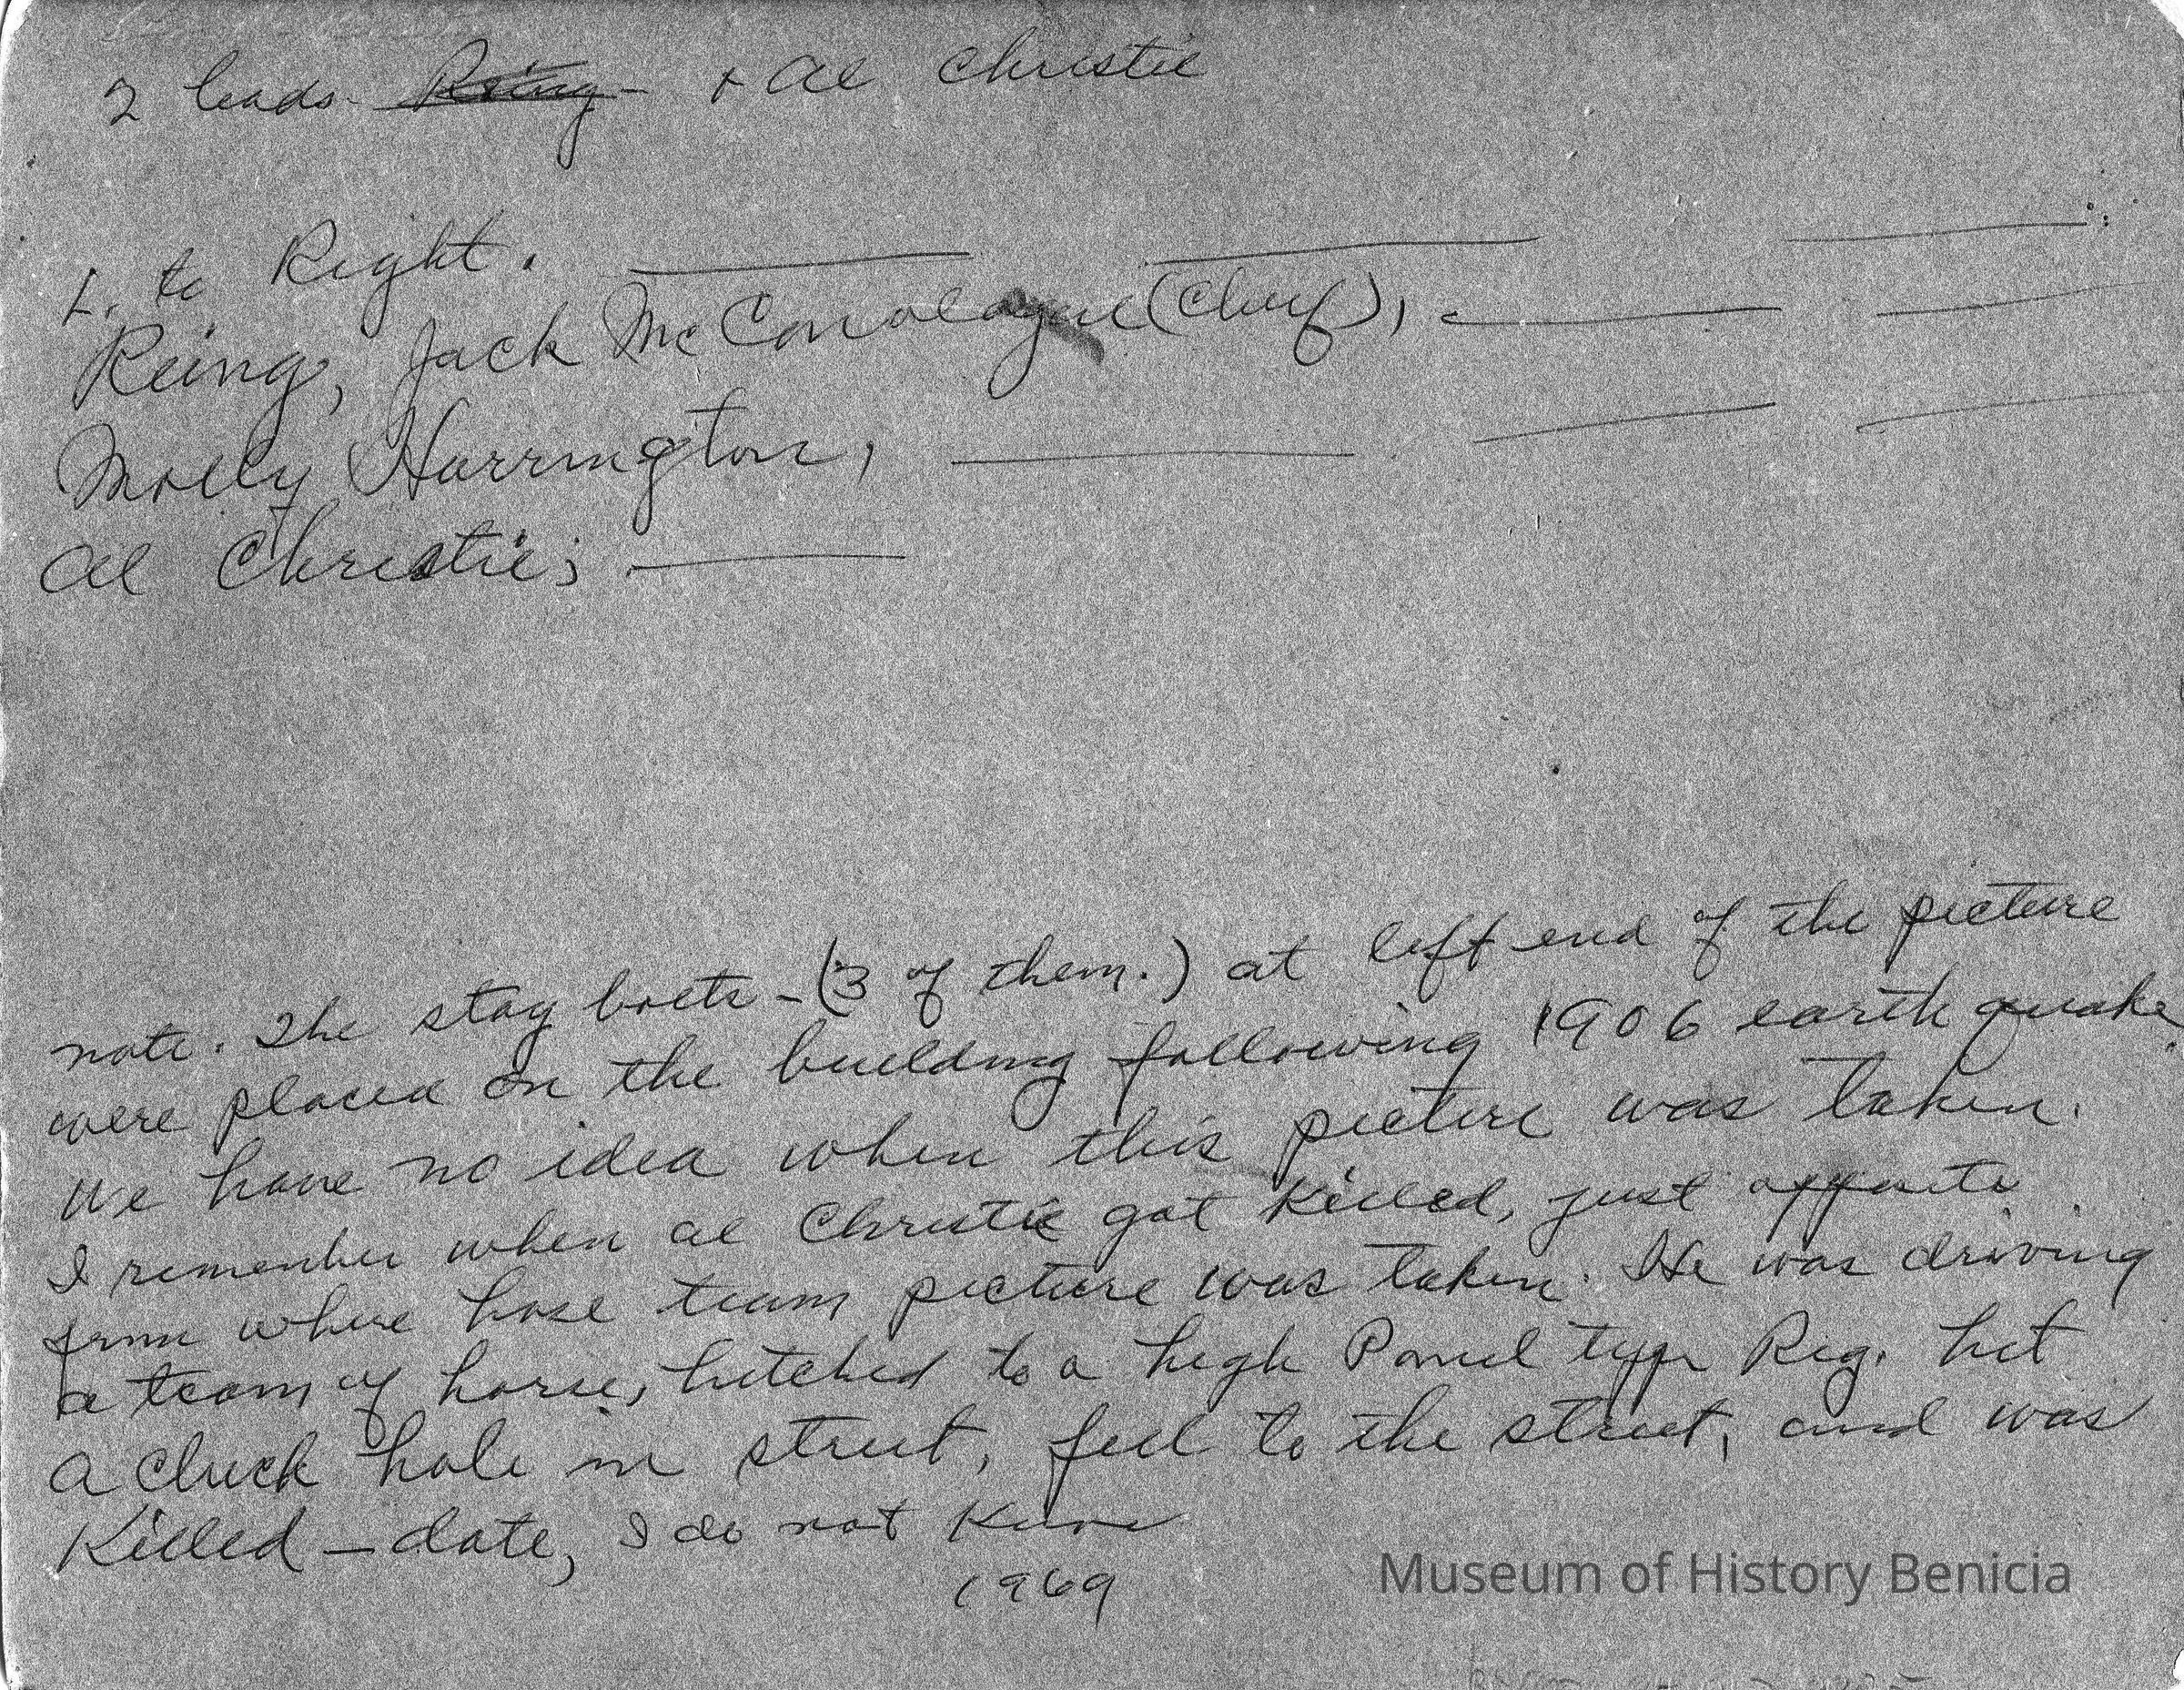 2 leads - Reing - + Al Christie
L. to Right. ______ ______ ______
Reing, Jack McConologue (Chief), ______ ______
Molly Harrington, ______ ______ ______
Al Christie; ______
note. The stay bolts - (3 of them.) at left end of the picture
were placed on the building following 1906 earth quake.
We have no idea when this picture was taken.
I remember when Al Christie got Killed, just opposite
from where hose team picture was taken. He was driving
a team of horse, hitched to a high Panel type Rig. hit
a chuck hole in street, fell to the street, and was
Killed - date, I do not Know
1969
Museum of History Benicia